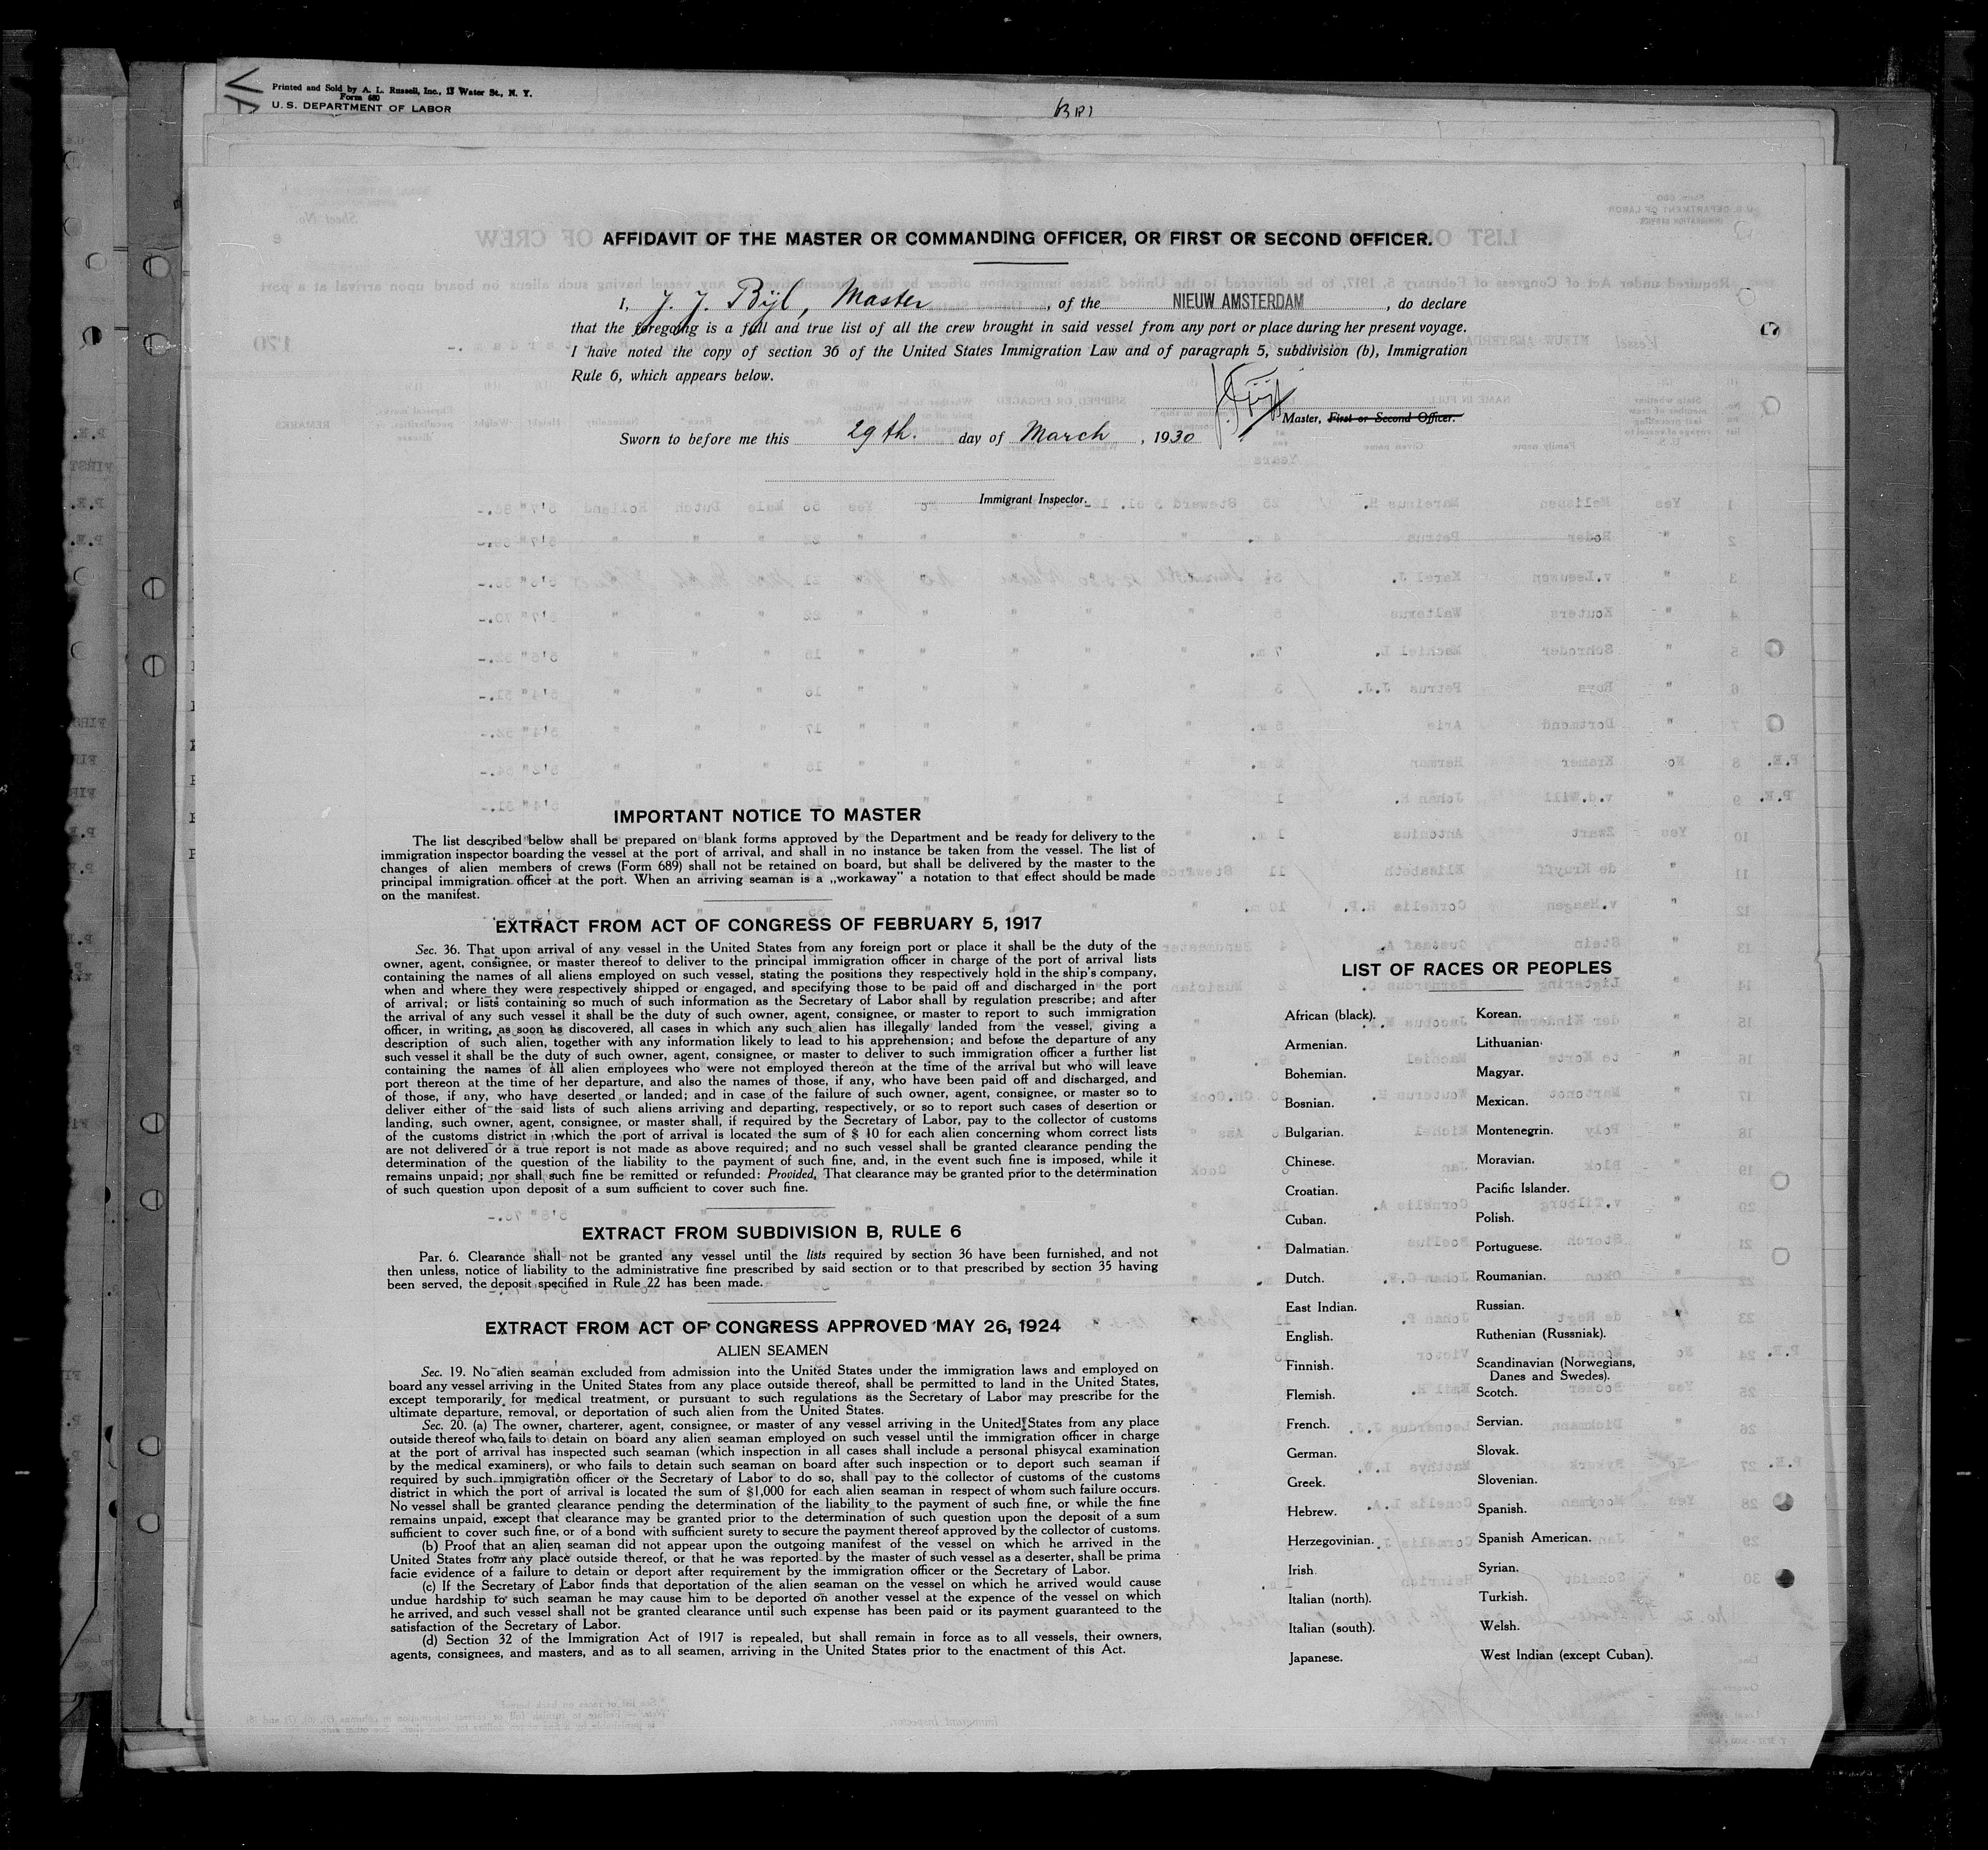 Printed and Sold by A. L. Russell, Inc., 13 Water St., N. Y.
Form 680
U. S. DEPARTMENT OF LABOR
AFFIDAVIT OF THE MASTER OR COMMANDING OFFICER, OR FIRST OR SECOND OFFICER.
I, J. J. Bijl, Master, of the NIEUW AMSTERDAM, do declare
that the foregoing is a full and true list of all the crew brought in said vessel from any port or place during her present voyage.
I have noted the copy of section 36 of the United States Immigration Law and of paragraph 5, subdivision (b), Immigration
Rule 6, which appears below.
Master, First or Second Officer.
Sworn to before me this 29th. day of March, 1930
Immigrant Inspector.
IMPORTANT NOTICE TO MASTER
The list described below shall be prepared on blank forms approved by the Department and be ready for delivery to the
immigration inspector boarding the vessel at the port of arrival, and shall in no instance be taken from the vessel. The list of
changes of alien members of crews (Form 689) shall not be retained on board, but shall be delivered by the master to the
principal immigration officer at the port. When an arriving seaman is a „workaway" a notation to that effect should be made
on the manifest.
EXTRACT FROM ACT OF CONGRESS OF FEBRUARY 5, 1917
Sec. 36. That upon arrival of any vessel in the United States from any foreign port or place it shall be the duty of the
owner, agent, consignee, or master thereof to deliver to the principal immigration officer in charge of the port of arrival lists
containing the names of all aliens employed on such vessel, stating the positions they respectively hold in the ship's company,
when and where they were respectively shipped or engaged, and specifying those to be paid off and discharged in the port
of arrival; or lists containing so much of such information as the Secretary of Labor shall by regulation prescribe; and after
the arrival of any such vessel it shall be the duty of such owner, agent, consignee, or master to report to such immigration
officer, in writing, as soon as discovered, all cases in which any such alien has illegally landed from the vessel, giving a
description of such alien, together with any information likely to lead to his apprehension; and before the departure of any
such vessel it shall be the duty of such owner, agent, consignee, or master to deliver to such immigration officer a further list
containing the names of all alien employees who were not employed thereon at the time of the arrival but who will leave
port thereon at the time of her departure, and also the names of those, if any, who have been paid off and discharged, and
of those, if any, who have deserted or landed; and in case of the failure of such owner, agent, consignee, or master so to
deliver either of the said lists of such aliens arriving and departing, respectively, or so to report such cases of desertion or
landing, such owner, agent, consignee, or master shall, if required by the Secretary of Labor, pay to the collector of customs
of the customs district in which the port of arrival is located the sum of $ 10 for each alien concerning whom correct lists
are not delivered or a true report is not made as above required; and no such vessel shall be granted clearance pending the
determination of the question of the liability to the payment of such fine, and, in the event such fine is imposed, while it
remains unpaid; nor shall such fine be remitted or refunded: Provided, That clearance may be granted prior to the determination
of such question upon deposit of a sum sufficient to cover such fine.
EXTRACT FROM SUBDIVISION B, RULE 6
Par. 6. Clearance shall not be granted any vessel until the lists required by section 36 have been furnished, and not
then unless, notice of liability to the administrative fine prescribed by said section or to that prescribed by section 35 having
been served, the deposit specified in Rule 22 has been made.
EXTRACT FROM ACT OF CONGRESS APPROVED MAY 26, 1924
ALIEN SEAMEN
Sec. 19. No alien seaman excluded from admission into the United States under the immigration laws and employed on
board any vessel arriving in the United States from any place outside thereof, shall be permitted to land in the United States,
except temporarily for medical treatment, or pursuant to such regulations as the Secretary of Labor may prescribe for the
ultimate departure, removal, or deportation of such alien from the United States.
Sec. 20. (a) The owner, charterer, agent, consignee, or master of any vessel arriving in the United States from any place
outside thereof who fails to detain on board any alien seaman employed on such vessel until the immigration officer in charge
at the port of arrival has inspected such seaman (which inspection in all cases shall include a personal phisycal examination
by the medical examiners), or who fails to detain such seaman on board after such inspection or to deport such seaman if
required by such immigration officer or the Secretary of Labor to do so, shall pay to the collector of customs of the customs
district in which the port of arrival is located the sum of $1,000 for each alien seaman in respect of whom such failure occurs.
No vessel shall be granted clearance pending the determination of the liability to the payment of such fine, or while the fine
remains unpaid, except that clearance may be granted prior to the determination of such question upon the deposit of a sum
sufficient to cover such fine, or of a bond with sufficient surety to secure the payment thereof approved by the collector of customs.
(b) Proof that an alien seaman did not appear upon the outgoing manifest of the vessel on which he arrived in the
United States from any place outside thereof, or that he was reported by the master of such vessel as a deserter, shall be prima
facie evidence of a failure to detain or deport after requirement by the immigration officer or the Secretary of Labor.
(c) If the Secretary of Labor finds that deportation of the alien seaman on the vessel on which he arrived would cause
undue hardship to such seaman he may cause him to be deported on another vessel at the expence of the vessel on which
he arrived, and such vessel shall not be granted clearance until such expense has been paid or its payment guaranteed to the
satisfaction of the Secretary of Labor.
(d) Section 32 of the Immigration Act of 1917 is repealed, but shall remain in force as to all vessels, their owners,
agents, consignees, and masters, and as to all seamen, arriving in the United States prior to the enactment of this Act.
LIST OF RACES OR PEOPLES
African (black).
Armenian.
Bohemian.
Bosnian.
Bulgarian.
Chinese.
Croatian.
Cuban.
Dalmatian.
Dutch.
East Indian.
English.
Finnish.
Flemish.
French.
German.
Greek.
Hebrew.
Herzegovinian.
Irish
Italian (north).
Italian (south).
Japanese.
Korean.
Lithuanian.
Magyar.
Mexican.
Montenegrin.
Moravian.
Pacific Islander.
Polish.
Portuguese.
Roumanian.
Russian.
Ruthenian (Russniak).
Scandinavian (Norwegians,
Danes and Swedes).
Scotch.
Servian.
Slovak.
Slovenian.
Spanish.
Spanish American.
Syrian.
Turkish.
Welsh.
West Indian (except Cuban).